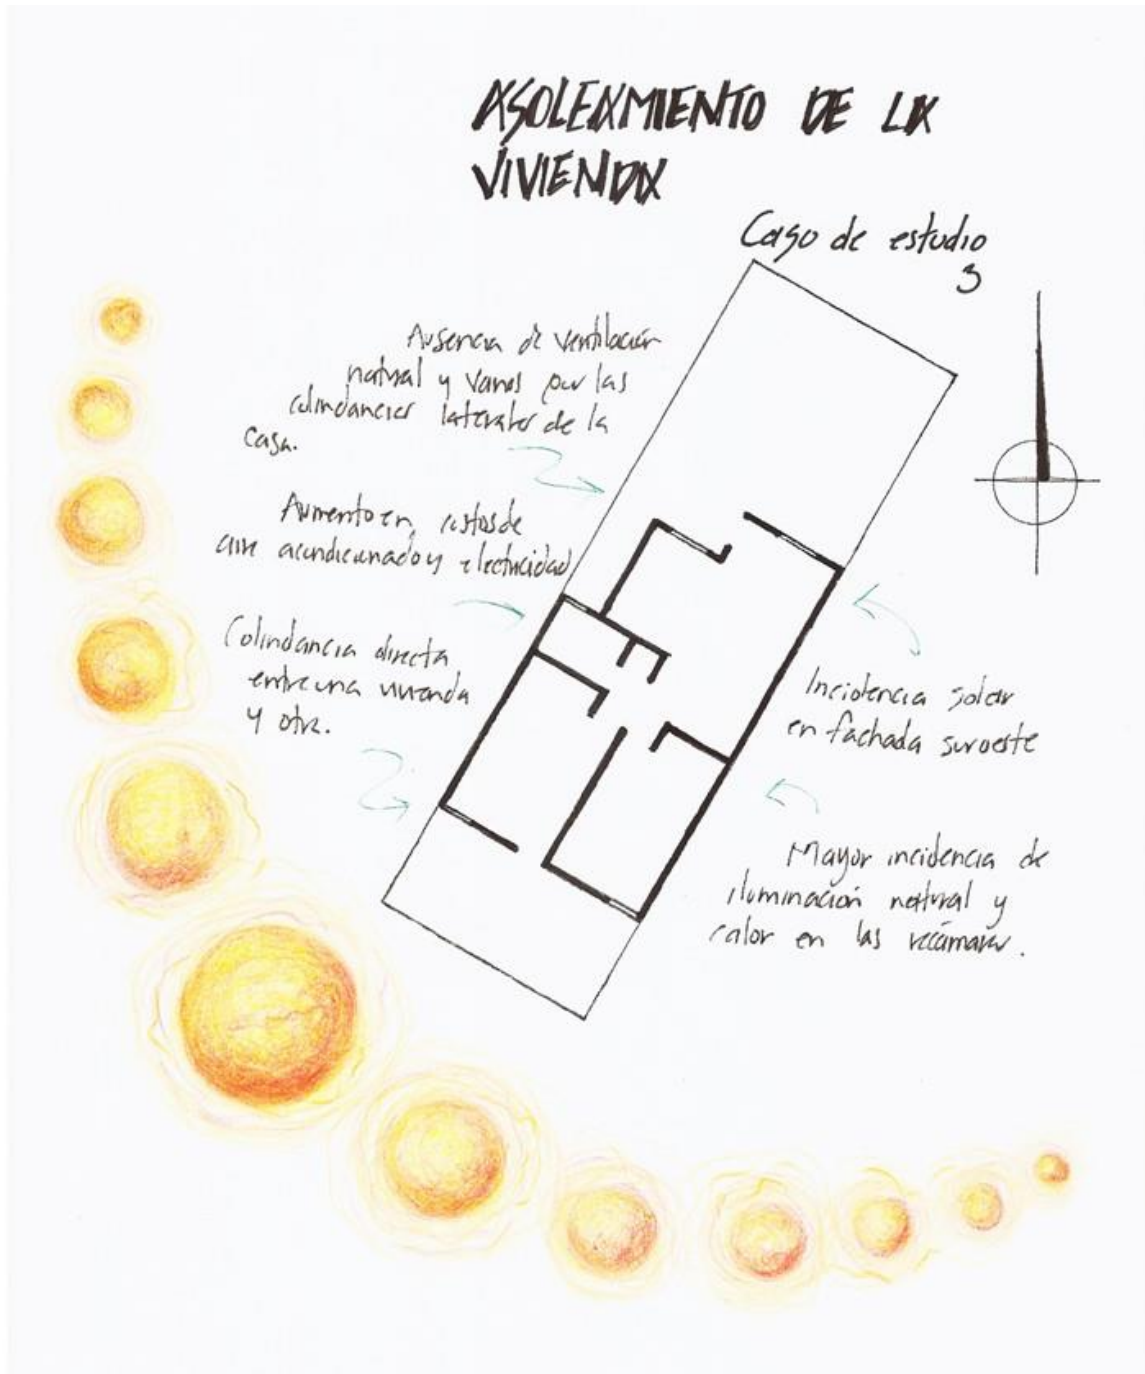 ASOLEAMIENTO DE LA
VIVIENDA
Caso de estudio
3
Ausencia de ventilación
natural y vanos por las
colindancias laterales de la
casa.
Aumento en costos de
aire acondicionado y electricidad
Colindancia directa
entre una vivienda
y otra.
Incidencia solar
en fachada suroeste
Mayor incidencia de
iluminación natural y
calor en las recámaras.